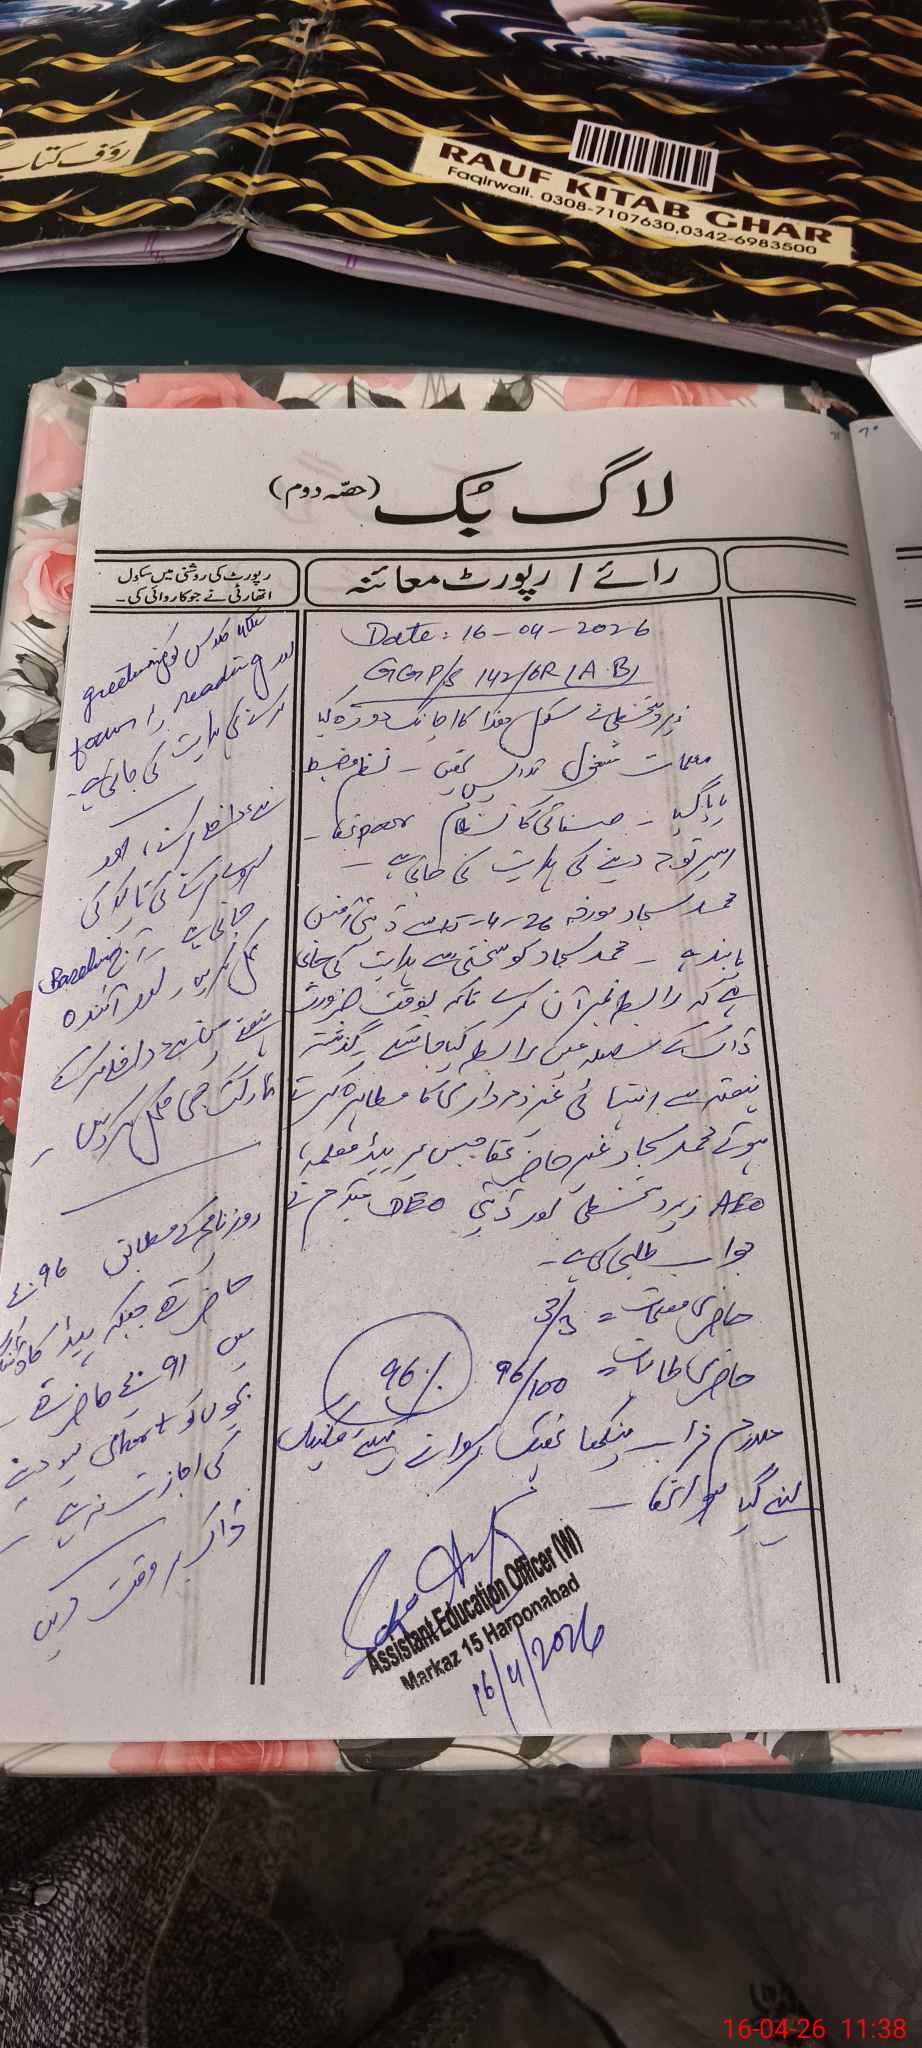 رؤف کتاب
RAUF KITAB GHAR
Faqirwali. 0308-7107630,0342-6983500
لاگ بُک (حصّہ دوم)
رائے / رپورٹ معائنہ
رپورٹ کی روشنی میں سکول
اتھارٹی نے جو کاروائی کی۔
Date: 16-04-2026
GGP/S 142/6R (A.B)
زیر دستخطی نے سکول ھذا کا اچانک دورہ کیا
معلمات مشغول تدریس تھیں۔ نظم و ضبط
پایا گیا۔ صفائی کا نظام poor تھا۔
اس پر توجہ دینے کی ہدایت کی جاتی ہے۔
محمد سجاد مورخہ
ہے۔ محمد سجاد کو سختی سے ہدایت کی جاتی
ہے کہ رابطہ نمبر آن کرے تاکہ بوقت ضرورت
ڈاک کے سلسلہ میں رابطہ کیا جا سکے۔ گذشتہ
ہفتہ سے انتہائی غیر ذمہ داری کا مظاہرہ کرتے
ہوئے محمد سجاد غیر حاضر تھا جس پر ہیڈ معلمہ،
AEO زیر دستخطی اور ڈپٹی DEO میڈم نے
جواب طلبی کی ہے۔
حاضری معلمات = 3/3
حاضری طالبات = 96/100 96%
ملازم خراب پنکھا ٹھیک کروانے
لینے گیا ہوا تھا۔
Assistant Education Officer (W)
Markaz 15 Haroonabad
16/4/2026
کلاس کو greeting
اور reading پر focus
کرنے کی ہدایت کی جاتی ہے۔
نئے داخلے کرنے، اور
کرنے کی تاکید کی
جاتی ہے۔ آج Baseline
مکمل کریں۔ اور آئندہ
ہفتے میں نئے داخلہ کے
ٹارگٹ بھی مکمل کر دیں۔
روزنامچہ کے مطابق 96 بچے
حاضر تھے جبکہ ہیڈ کاؤنٹ
میں 91 بچے حاضر تھے۔
بچوں کو short
کی اجازت نہ ہے۔
ڈاک بر وقت دیں
16-04-26 11:38